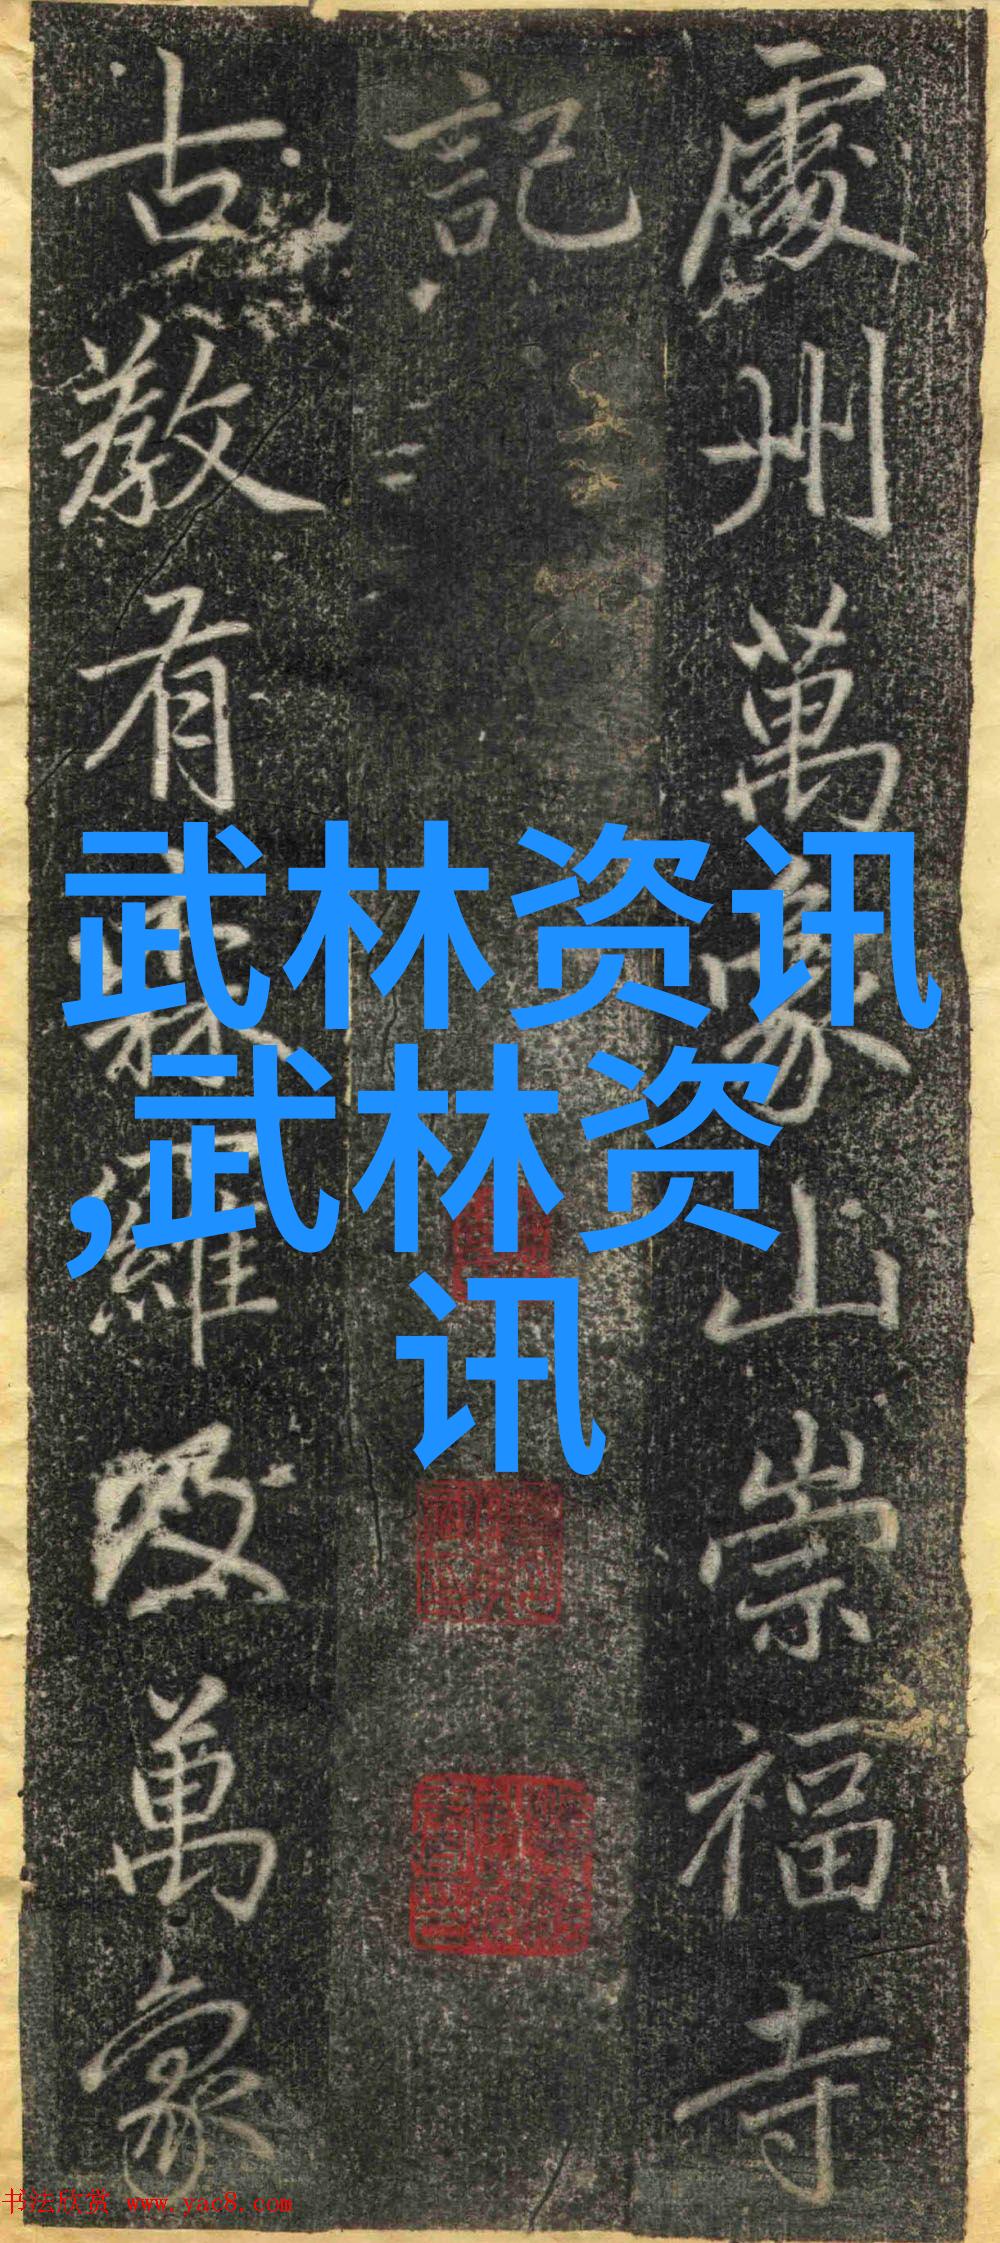 處州萬象山崇福寺
記
古教有森羅及萬象
武林资讯
,武林资
讯
书法欣赏 www.yac8.com